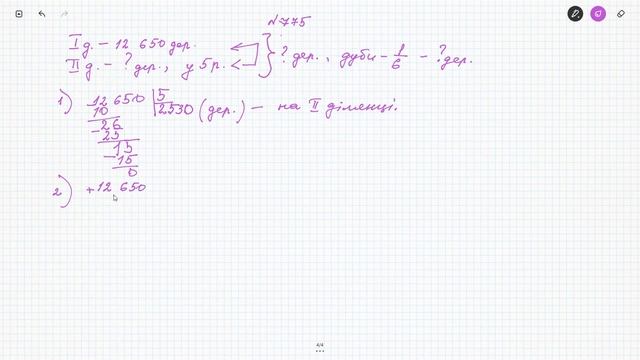 №775
I д. – 12 650 дер.
II д. – ? дер., у 5 р. < } ? дер., дуби – 1/6 – ? дер.
1) 12 650 | 5
10 2530 (дер.) – на II ділянці.
– 26
25
15
– 15
0
2) + 12 650
4/4